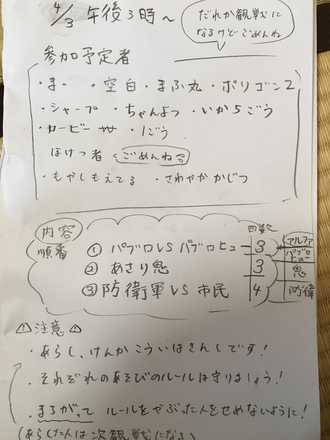 4/3 午後3時〜
だれか観戦に
なるけどごめんね
参加予定者
・ま・ ・空白・まふ丸・ポリゴン2
・シャープ ・ちゃんよつ・いか5ごう
・カービー ・1ごう
ほけつ者 ごめんね
・もやしもえてる ・さわやかかじつ
内容
順番
回数
① パブロVSパブロヒュー 3
② あさり 3
③ 防衛軍VS市民 4
アルファ
パブロ
ヒュー
防衛
⚠注意⚠
・あらし、けんかこういはきんしです!
・それぞれのあそびのルールは守りましょう!
・まちがって ルールをやぶった人をせめないように!
(あらした人は次観戦になる